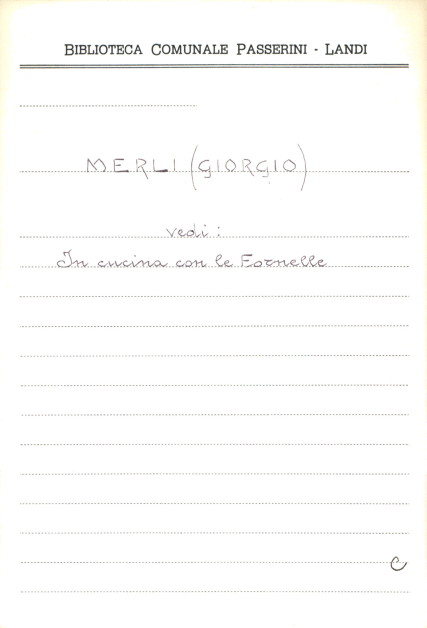 BIBLIOTECA COMUNALE PASSERINI - LANDI
MERLI (GIORGIO)
vedi:
In cucina con le Fornelle
C